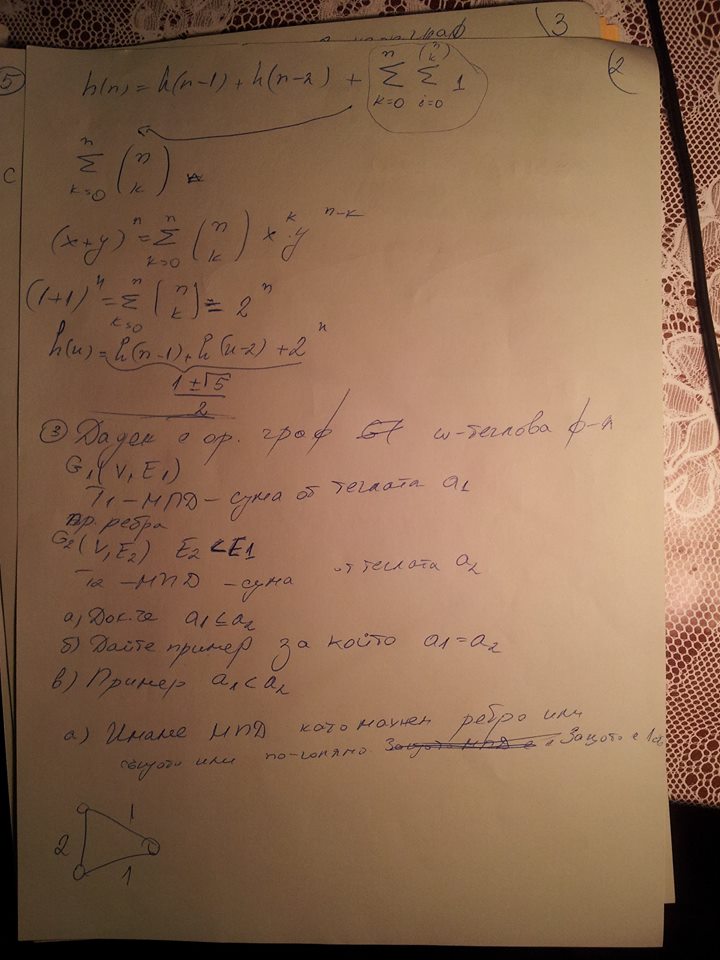 3
5
2
c
h(n) = h(n-1) + h(n-2) + \sum_{k=0}^{n} \sum_{i=0}^{\binom{n}{k}} 1
\sum_{k=0}^{n} \binom{n}{k}
(x+y)^n = \sum_{k=0}^{n} \binom{n}{k} x^k \cdot y^{n-k}
(1+1)^n = \sum_{k=0}^{n} \binom{n}{k} = 2^n
h(n) = h(n-1) + h(n-2) + 2^n
\frac{1 \pm \sqrt{5}}{2}
③ Даден е ор. граф w-теглова ф-я
G1(V, E1)
T1 - МПД - сума от теглата a1
пр. ребра
G2(V, E2) E2 < E1
T2 - МПД - сума от теглата a2
а) Док. че a1 ≤ a2
б) Дайте пример за който a1 = a2
в) Пример a1 < a2
а) Имаме МПД като махнем ребро или
същото или по-голямо. Защото е 1
1
2
1